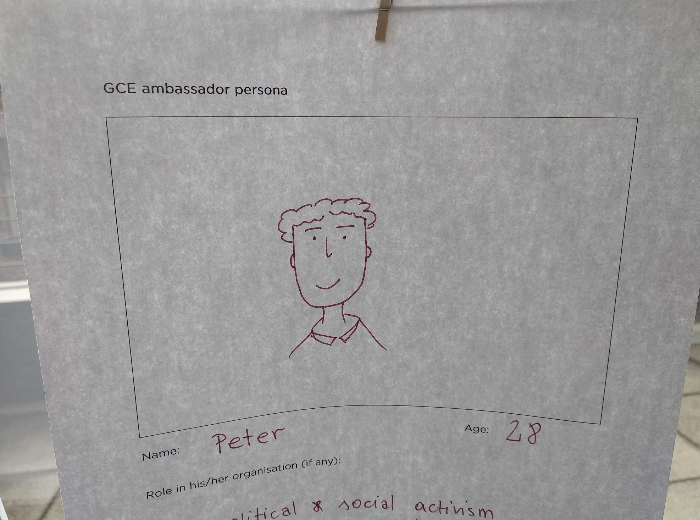 GCE ambassador persona
Name: Peter Age: 28
Role in his/her organisation (if any):
& social activism